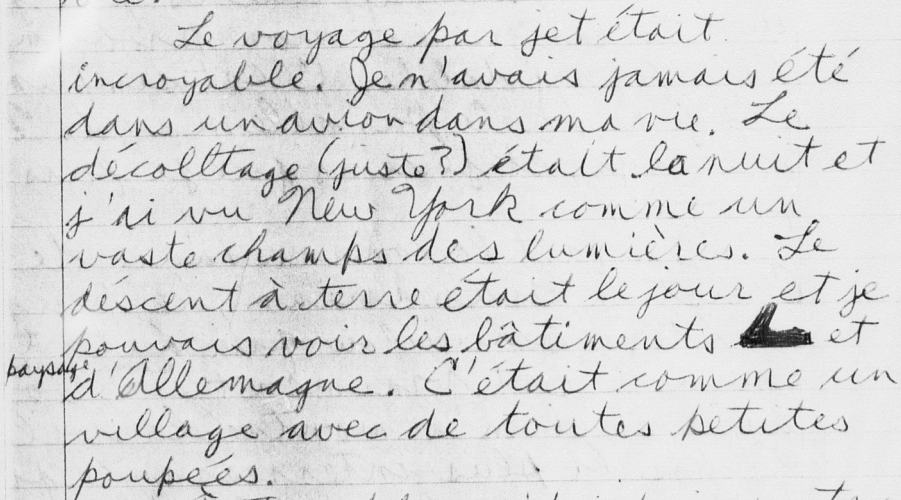 Le voyage par jet était
incroyable. Je n'avais jamais été
dans un avion dans ma vie. Le
décolltage (juste?) était la nuit et
j'ai vu New York comme un
vaste champs des lumières. Le
déscent à terre était le jour et je
pouvais voir les bâtiments et
paysage d'Allemagne. C'était comme un
village avec de toutes petites
poupées.